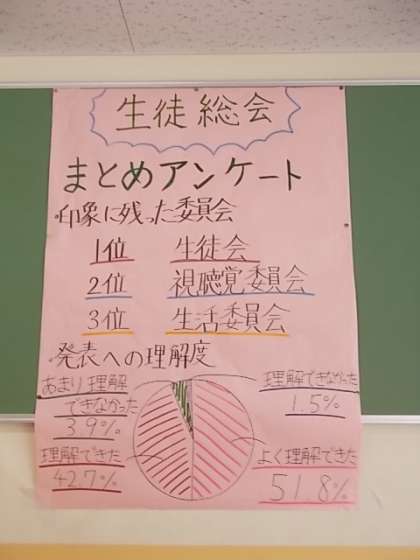 生徒総会
まとめアンケート
印象に残った委員会
1位 生徒会
2位 視聴覚委員会
3位 生活委員会
発表への理解度
あまり理解
できなかった
3.9%
理解できなかった
1.5%
理解できた
42.7%
よく理解できた
51.8%